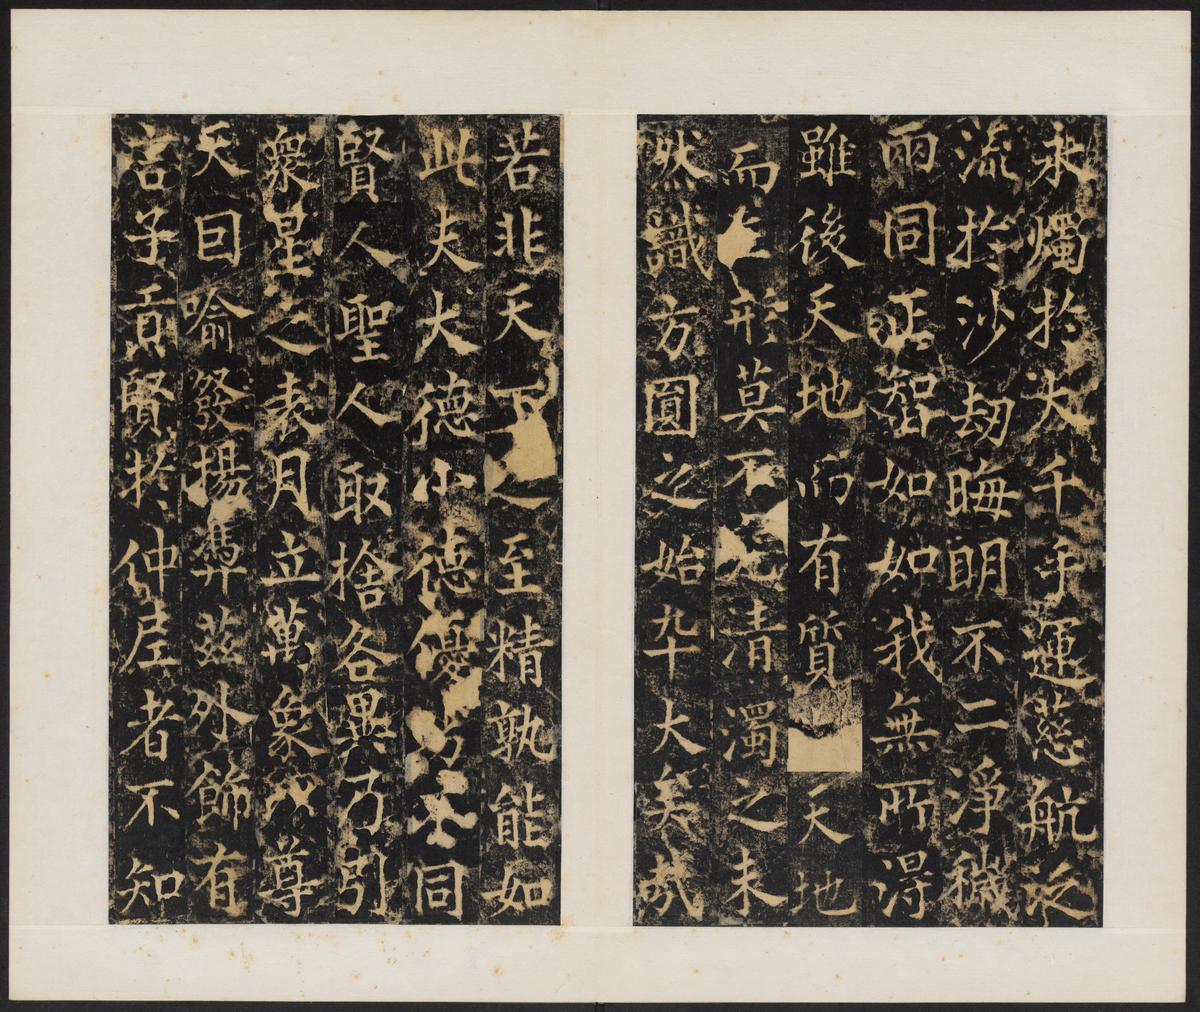 永燭於大千手運慈航泛
流於沙劫晦明不二淨穢
兩同正智如如我無所得
雖後天地而有質天地
而形莫不清濁之未
然識方圓之始卒大矣哉
若非天下之至精孰能如
此夫大德小德優劣不同
賢人聖人取捨各異乃引
衆星之表月立萬象以尊
天囙喻發揚茲外飾有
言子貢賢於仲尼者不知